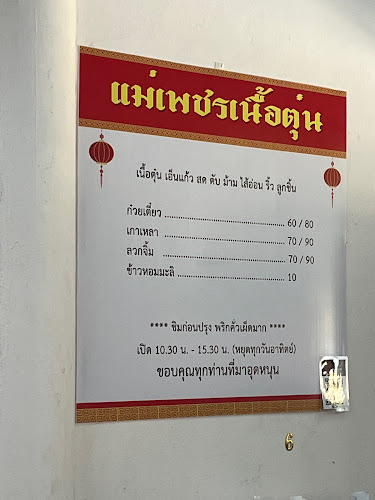 แม่เพชรเนื้อตุ๋น
เนื้อตุ๋น เอ็นแก้ว สด ตับ ม้าม ไส้อ่อน ริ้ว ลูกชิ้น
ก๋วยเตี๋ยว ........................................ 60 / 80
เกาเหลา ........................................ 70 / 90
ลวกจิ้ม ........................................ 70 / 90
ข้าวหอมมะลิ ........................................ 10
**** ชิมก่อนปรุง พริกคั่วเผ็ดมาก ****
เปิด 10.30 น. - 15.30 น. (หยุดทุกวันอาทิตย์)
ขอบคุณทุกท่านที่มาอุดหนุน
6